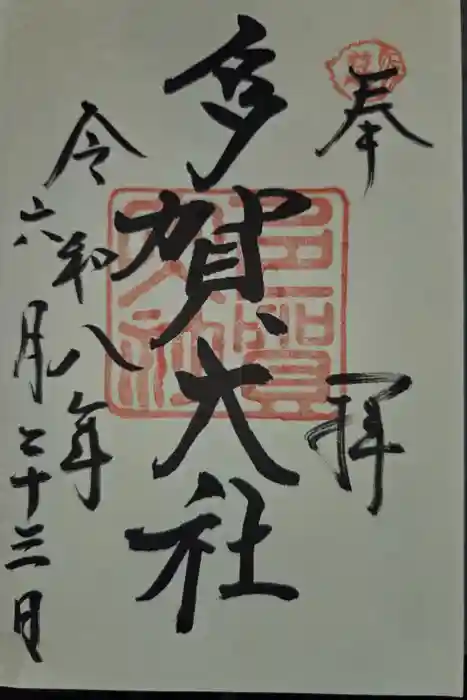 奉拝
多賀大社
令和八年
六月二十三日
多賀大社